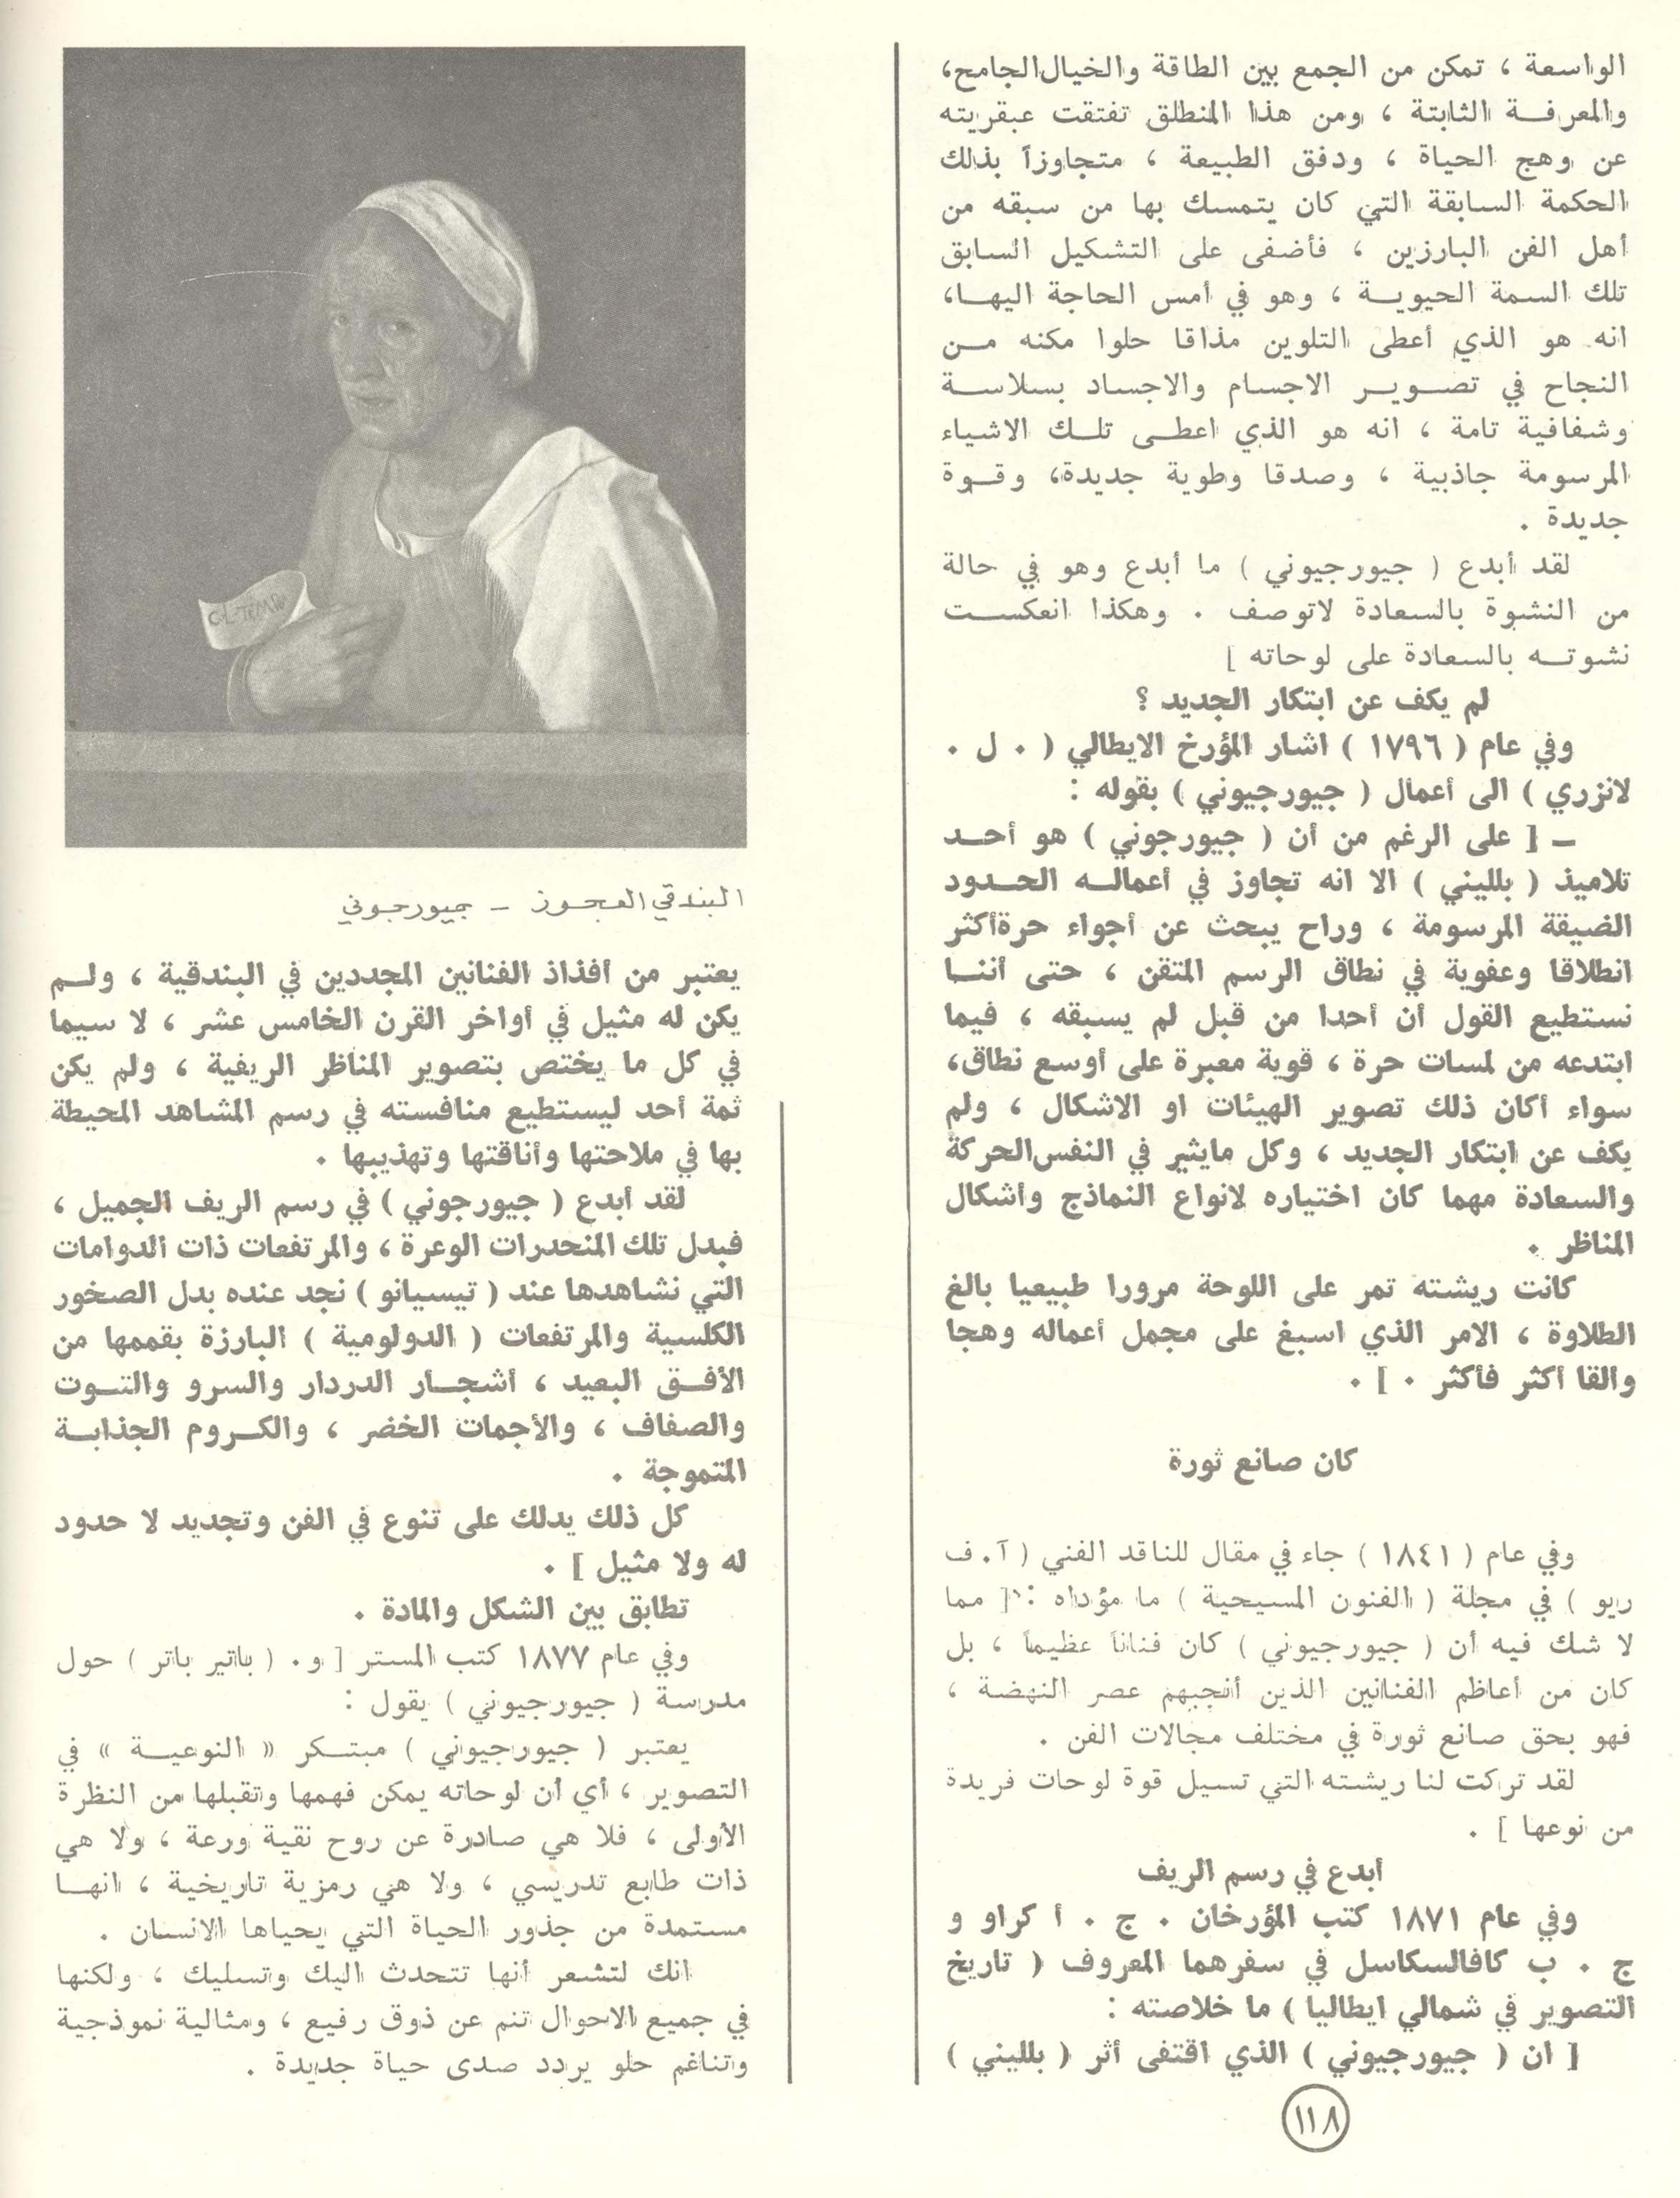 الواسعة ، تمكن من الجمع بين الطاقة والخيال الجامح،
والمعرفـــة الثابتة ، ومن هذا المنطلق تفتقت عبقريته
عن وهج الحياة ، ودفق الطبيعة ، متجاوزاً بذلك
الحكمة السابقة التي كان يتمسك بها من سبقه من
أهل الفن البارزين ، فأضفى على التشكيل السابق
تلك السمة الحيويــة ، وهو في أمس الحاجة اليهـا،
انه هو الذي أعطى التلوين مذاقا حلوا مكنه مـن
النجاح في تصـويــر الاجسام والاجساد بسلاســة
وشفافية تامة ، انه هو الذي اعطـى تلـك الاشياء
المرسومة جاذبية ، وصدقا وطوية جديدة، وقــوة
جديدة .
لقد أبدع ( جيورجيوني ) ما أبدع وهو في حالة
من النشوة بالسعادة لاتوصف . وهكذا انعكسـت
نشوتــه بالسعادة على لوحاته ]
لم يكف عن ابتكار الجديد ؟
وفي عام ( ١٧٩٦ ) اشار المؤرخ الايطالي ( . ل .
لانزري ) الى أعمال ( جيورجيوني ) بقوله :
– [ على الرغم من أن ( جيورجوني ) هو أحـد
تلاميذ ( بلليني ) الا انه تجاوز في أعمالــه الحــدود
الضيقة المرسومة ، وراح يبحث عن أجواء حرةأكثر
انطلاقا وعفوية في نطاق الرسم المتقن ، حتى أننـا
نستطيع القول أن أحدا من قبل لم يسبقه ، فيما
ابتدعه من لمسات حرة ، قوية معبرة على أوسع نطاق،
سواء أكان ذلك تصوير الهيئات او الاشكال ، ولم
يكف عن ابتكار الجديد ، وكل مايثير في النفس الحركة
والسعادة مهما كان اختياره لانواع النماذج وأشكال
المناظر .
كانت ريشته تمر على اللوحة مرورا طبيعيا بالغ
الطلاوة ، الامر الذي اسبغ على مجمل أعماله وهجا
والقا أكثر فأكثر . ] .
كان صانع ثورة
وفي عام ( ١٨٤١ ) جاء في مقال للناقد الفني ( آ . ف
ريو ) في مجلة ( الفنون المسيحية ) ما مؤداه : [ مما
لا شك فيه أن ( جيورجيوني ) كان فناناً عظيماً ، بل
كان من أعاظم الفنانين الذين أنجبهم عصر النهضة ،
فهو بحق صانع ثورة في مختلف مجالات الفن .
لقد تركت لنا ريشته التي تسيل قوة لوحات فريدة
من نوعها ] .
أبدع في رسم الريف
وفي عام ١٨٧١ كتب المؤرخان . ج . أ كراو و
ج . ب كافالسكاسل في سفرهما المعروف ( تاريخ
التصوير في شمالي ايطاليا ) ما خلاصته :
[ ان ( جيورجيوني ) الذي اقتفى أثر ( بلليني )
البندقي العجوز – جيورجوني
يعتبر من أفذاذ الفنانين المجددين في البندقية ، ولـم
يكن له مثيل في أواخر القرن الخامس عشر ، لا سيما
في كل ما يختص بتصوير المناظر الريفية ، ولم يكن
ثمة أحد ليستطيع منافسته في رسم المشاهد المحيطة
بها في ملاحتها وأناقتها وتهذيبها .
لقد أبدع ( جيورجوني ) في رسم الريف الجميل ،
فبدل تلك المنحدرات الوعرة ، والمرتفعات ذات الدوامات
التي نشاهدها عند ( تيسيانو ) نجد عنده بدل الصخور
الكلسية والمرتفعات ( الدولومية ) البارزة بقممها من
الأفــق البعيد ، أشجـار الدردار والسرو والتـوت
والصفاف ، والأجمات الخضر ، والكـروم الجذابـة
المتموجة .
كل ذلك يدلك على تنوع في الفن وتجديد لا حدود
له ولا مثيل ] .
تطابق بين الشكل والمادة .
وفي عام ١٨٧٧ كتب المستر [ و. ( باتير باتر ) حول
مدرسة ( جيورجيوني ) يقول :
يعتبر ( جيورجيوني ) مبتـكر « النوعيــة » في
التصوير ، أي أن لوحاته يمكن فهمها وتقبلها من النظرة
الأولى ، فلا هي صادرة عن روح نقية ورعة ، ولا هي
ذات طابع تدريسي ، ولا هي رمزية تاريخية ، انهـا
مستمدة من جذور الحياة التي يحياها الانسان .
انك لتشعر أنها تتحدث اليك وتسليك ، ولكنها
في جميع الاحوال تنم عن ذوق رفيع ، ومثالية نموذجية
وتناغم حلو يردد صدى حياة جديدة .
١١٨